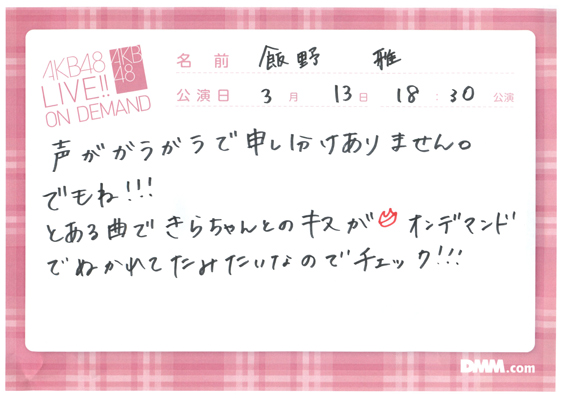 AKB48
LIVE!!
ON DEMAND
AKB
48
名前 飯野 雅
公演日 3月 13日 18:30 公演
声ががラガラで申し分けありません。
でもね!!!
とある曲できらちゃんとのキスが オンデマンド
でぬかれてたみたいなのでチェック!!!
DMM.com